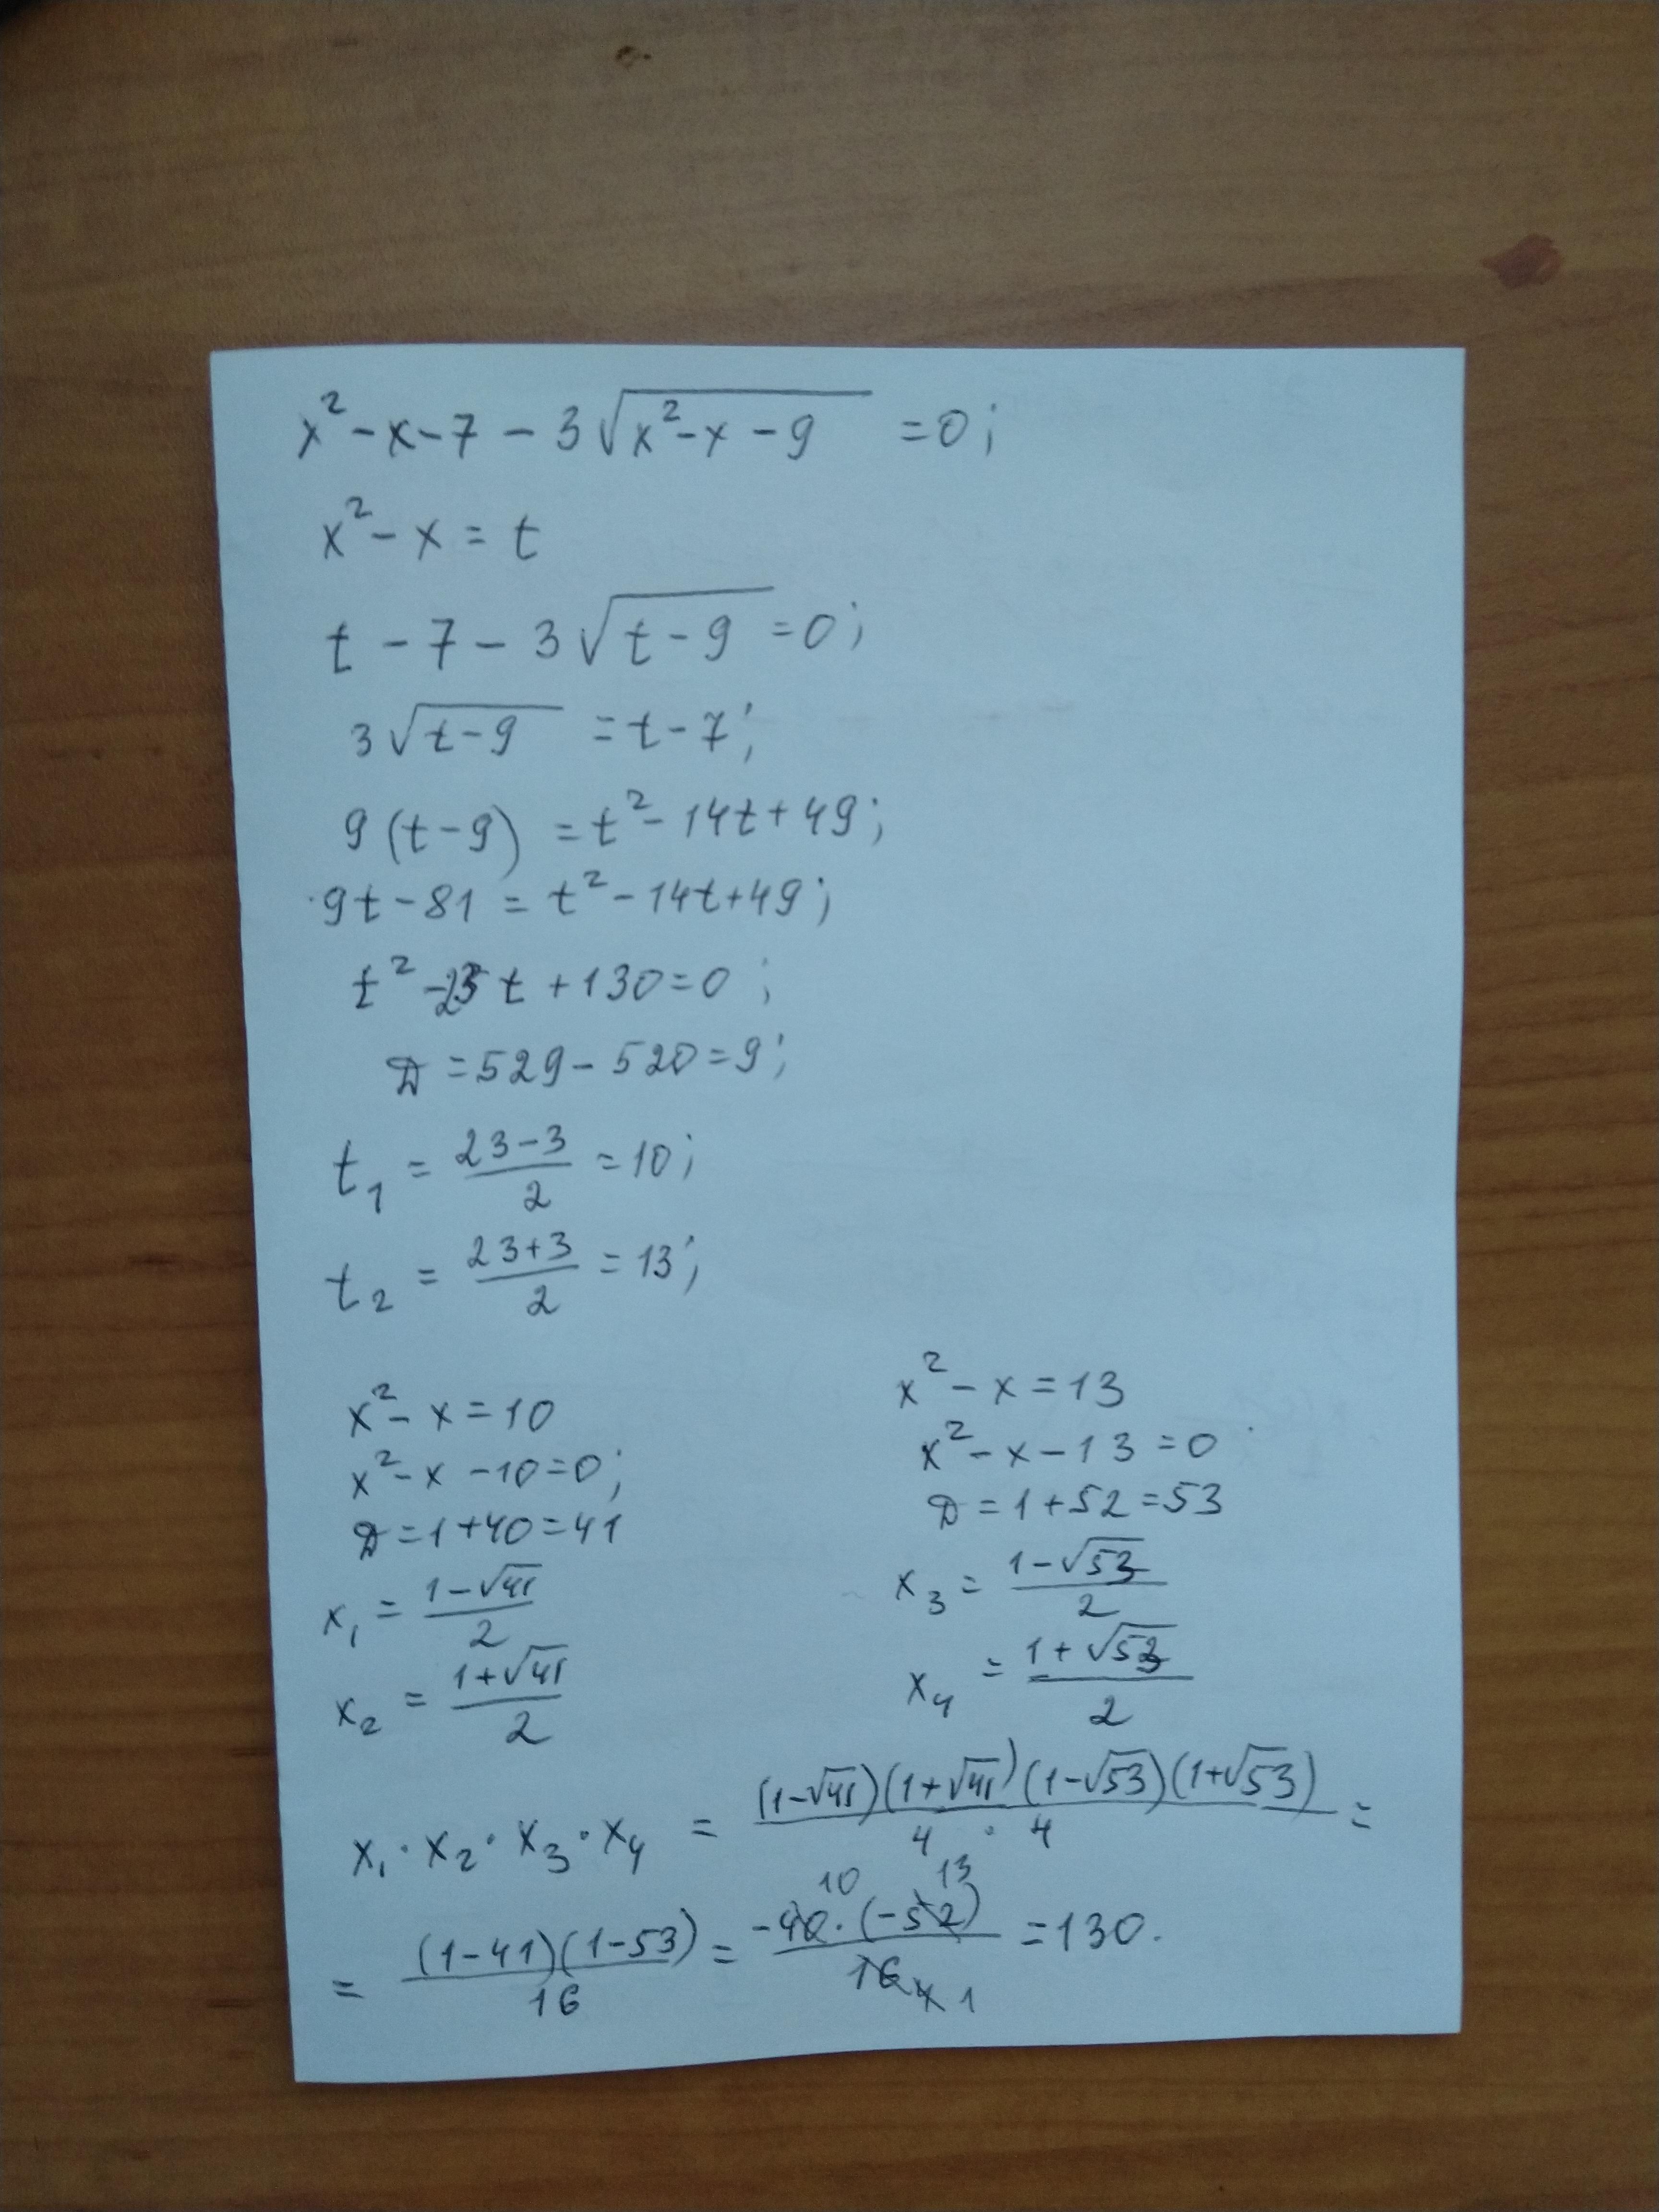 x² - x - 7 - 3√(x² - x - 9) = 0;
x² - x = t
t - 7 - 3√(t - 9) = 0;
3√(t - 9) = t - 7;
9(t - 9) = t² - 14t + 49;
9t - 81 = t² - 14t + 49;
t² - 23t + 130 = 0;
D = 529 - 520 = 9;
t₁ = (23 - 3)/2 = 10;
t₂ = (23 + 3)/2 = 13;
x² - x = 10
x² - x - 10 = 0;
D = 1 + 40 = 41
x₁ = (1 - √41)/2
x₂ = (1 + √41)/2
x² - x = 13
x² - x - 13 = 0
D = 1 + 52 = 53
x₃ = (1 - √53)/2
x₄ = (1 + √53)/2
x₁ · x₂ · x₃ · x₄ = (1 - √41)(1 + √41)(1 - √53)(1 + √53)/(4 · 4) =
10 13
= (1 - 41)(1 - 53)/16 = -40 · (-52)/16 = 130.
4 1